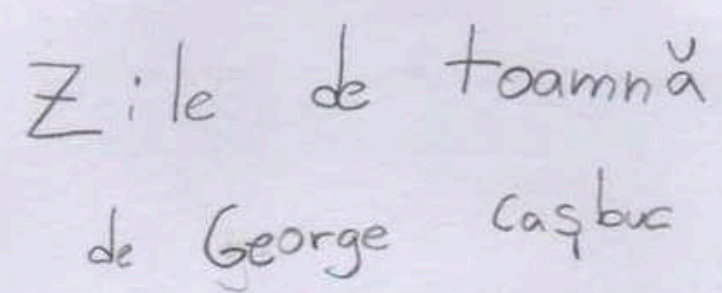 Zile de toamnă
de George Caşbuc